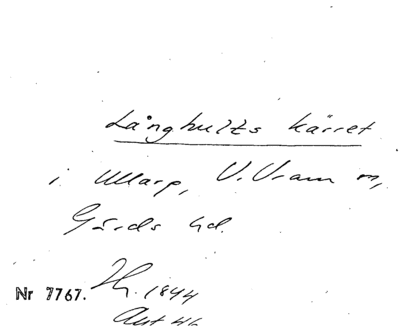 Långhults kärret
i Ullarp, V. Vram m,
Gärds hd.
Nr 7767. Th. 1844
Akt 46